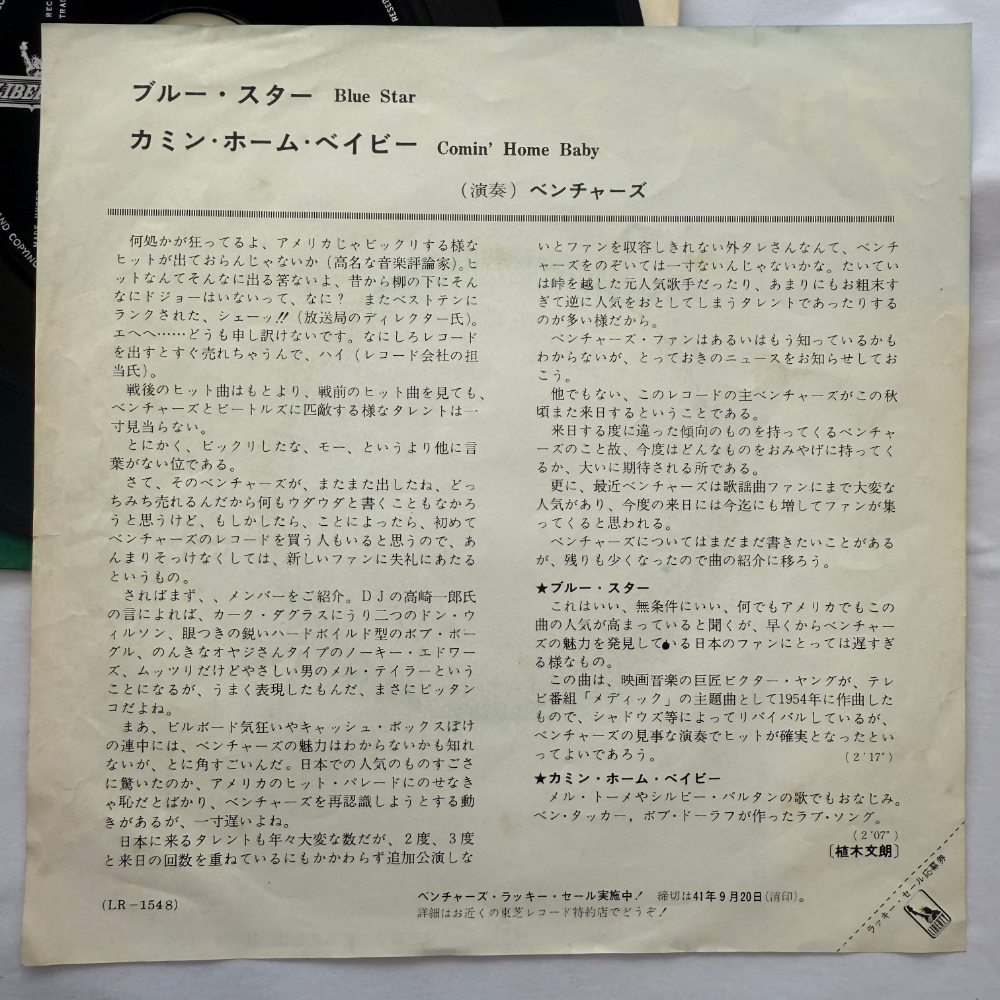 ブルー・スター Blue Star
カミン・ホーム・ベイビー Comin' Home Baby
(演奏) ベンチャーズ
何処かが狂ってるよ、アメリカじゃビックリする様な
ヒットが出ておらんじゃないか(高名な音楽評論家)。ヒ
ットなんてそんなに出る筈ないよ、昔から柳の下にそん
なにドジョーはいないって、なに? またベストテンに
ランクされた、シェーッ!!(放送局のディレクター氏)。
エヘヘ……どうも申し訳けないです。なにしろレコード
を出すとすぐ売れちゃうんで、ハイ(レコード会社の担
当氏)。
戦後のヒット曲はもとより、戦前のヒット曲を見ても、
ベンチャーズとビートルズに匹敵する様なタレントは一
寸見当らない。
とにかく、ビックリしたな、モー、というより他に言
葉がない位である。
さて、そのベンチャーズが、またまた出したね、どっ
ちみち売れるんだから何もウダウダと書くこともなかろ
うと思うけど、もしかしたら、ことによったら、初めて
ベンチャーズのレコードを買う人もいると思うので、あ
んまりそっけなくしては、新しいファンに失礼にあたる
というもの。
さればまず、、メンバーをご紹介。DJの高崎一郎氏
の言によれば、カーク・ダグラスにうり二つのドン・ウ
ィルソン、眼つきの鋭いハードボイルド型のボブ・ボー
グル、のんきなオヤジさんタイプのノーキー・エドワー
ズ、ムッツリだけどやさしい男のメル・テイラーという
ことになるが、うまく表現したもんだ、まさにピッタン
コだよね。
まあ、ビルボード気狂いやキャッシュ・ボックスぼけ
の連中には、ベンチャーズの魅力はわからないかも知れ
ないが、とに角すごいんだ。日本での人気のものすごさ
に驚いたのか、アメリカのヒット・パレードにのせなき
ゃ恥だとばかり、ベンチャーズを再認識しようとする動
きがあるが、一寸遅いよね。
日本に来るタレントも年々大変な数だが、2度、3度
と来日の回数を重ねているにもかかわらず追加公演しな
いとファンを収容しきれない外タレさんなんて、ベンチ
ャーズをのぞいては一寸ないんじゃないかな。たいてい
は峠を越した元人気歌手だったり、あまりにもお粗末す
ぎて逆に人気をおとしてしまうタレントであったりする
のが多い様だから。
ベンチャーズ・ファンはあるいはもう知っているかも
わからないが、とっておきのニュースをお知らせしてお
こう。
他でもない、このレコードの主ベンチャーズがこの秋
頃また来日するということである。
来日する度に違った傾向のものを持ってくるベンチャ
ーズのこと故、今度はどんなものをおみやげに持ってく
るか、大いに期待される所である。
更に、最近ベンチャーズは歌謡曲ファンにまで大変な
人気があり、今度の来日には今迄にも増してファンが集
ってくると思われる。
ベンチャーズについてはまだまだ書きたいことがある
が、残りも少くなったので曲の紹介に移ろう。
★ブルー・スター
これはいい、無条件にいい、何でもアメリカでもこの
曲の人気が高まっていると聞くが、早くからベンチャー
ズの魅力を発見している日本のファンにとっては遅すぎ
る様なもの。
この曲は、映画音楽の巨匠ビクター・ヤングが、テレ
ビ番組「メディック」の主題曲として1954年に作曲した
もので、シャドウズ等によってリバイバルしているが、
ベンチャーズの見事な演奏でヒットが確実となったとい
ってよいであろう。 (2'17")
★カミン・ホーム・ベイビー
メル・トーメやシルビー・バルタンの歌でもおなじみ。
ベン・タッカー，ボブ・ドーラフが作ったラブ・ソング。
(2'07")
〔植木文朗〕
(LR-1548)
ベンチャーズ・ラッキー・セール実施中! 締切は41年9月20日(消印)。
詳細はお近くの東芝レコード特約店でどうぞ!
ラッキー・セール応募券
LIBERTY